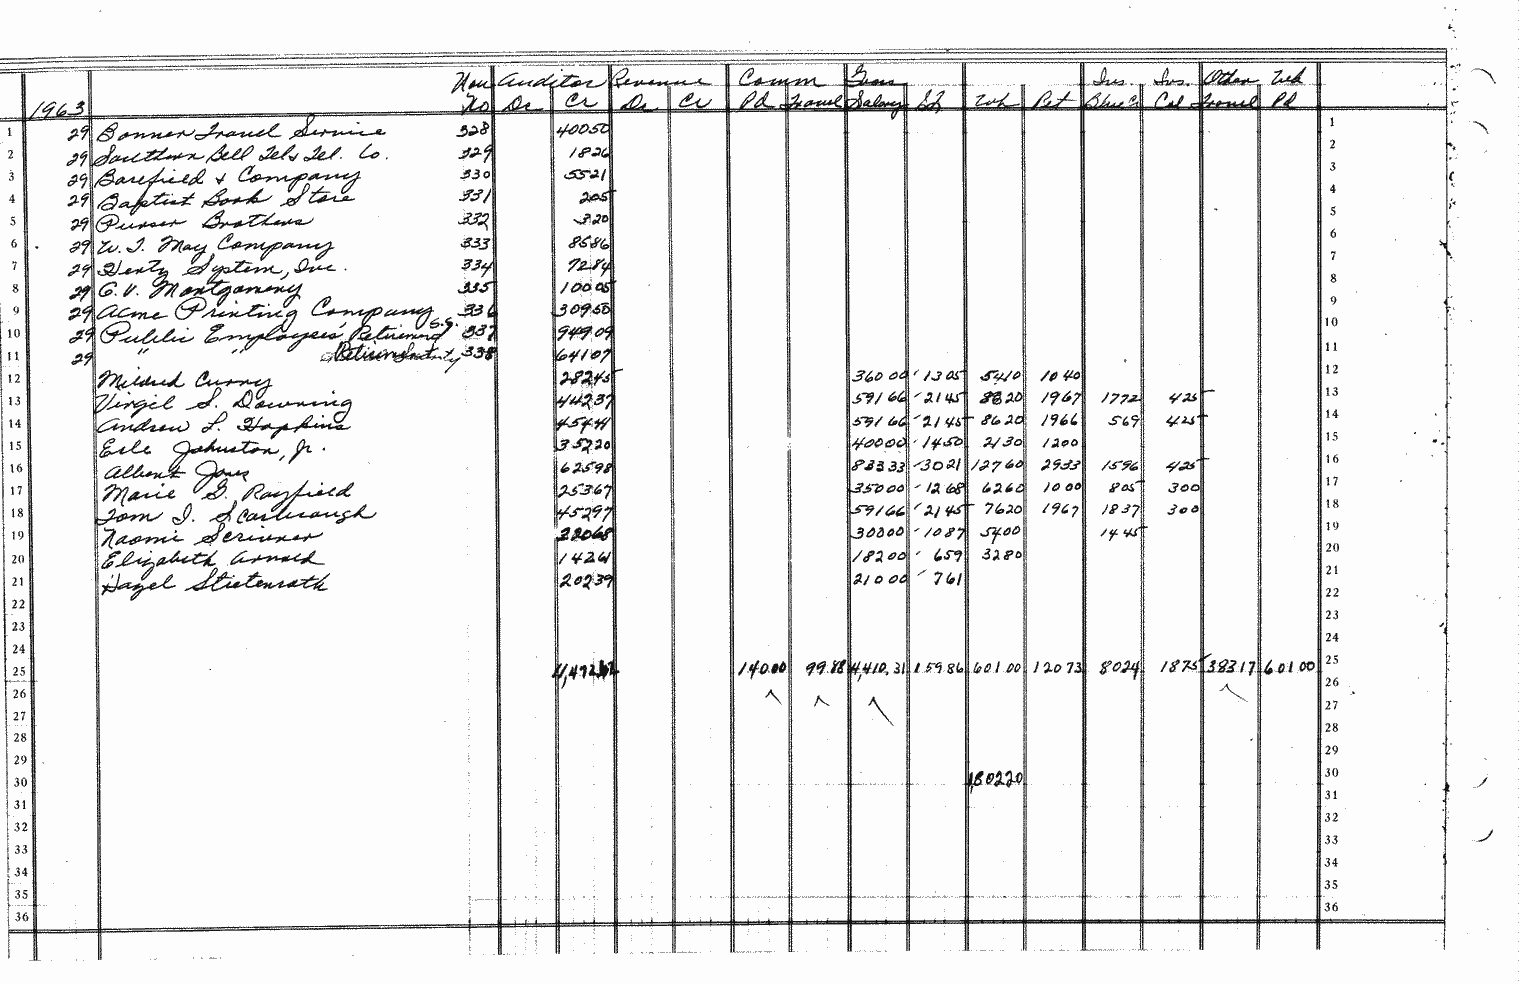 Nov Auditor Revenue Comm Gross Ins. Ins. Other Wh
1963 No Dr Cr Dr Cr Pd Travel Salary SS Wh Ret Blue C Col Travel Pd
1 29 Bonner Travel Service 328 40050 1
2 29 Southern Bell Tel & Tel. Co. 329 1826 2
3 29 Barefield & Company 330 5521 3
4 29 Baptist Book Store 331 205 4
5 29 Purser Brothers 332 320 5
6 29 W. T. May Company 333 8586 6
7 29 System, Inc. 334 7284 7
8 29 G. V. Montgomery 335 10005 8
9 29 Acme Printing Company 336 30950 9
10 29 Public Employees' Retirement S.S. 337 94909 10
11 29 " " Retirement 338 64107 11
12 Mildred Curry 28245 36000 1305 5410 1040 12
13 Virgil S. Downing 44237 59166 2145 8820 1967 1772 425 13
14 Andrew L. Hopkins 45444 59166 2145 8620 1966 569 425 14
15 Erle Johnston, Jr. 35220 40000 1450 2130 1200 15
16 Albert Jones 62598 83333 3021 12760 2933 1596 425 16
17 Marie G. Rayfield 25367 35000 1268 6260 1000 805 300 17
18 Tom I. Scarbrough 45297 59166 2145 7620 1967 1837 300 18
19 Naomi Scrivner 22068 30000 1087 5400 1445 19
20 Elizabeth Arnold 14261 18200 659 3280 20
21 Hazel Stietenroth 20239 21000 761 21
22 22
23 23
24 24
25 4,472.62 140.00 99.88 4,410.31 159.86 601.00 120.73 80.24 18.75 383.17 601.00 25
26 26
27 27
28 28
29 29
30 1,802.20 30
31 31
32 32
33 33
34 34
35 35
36 36